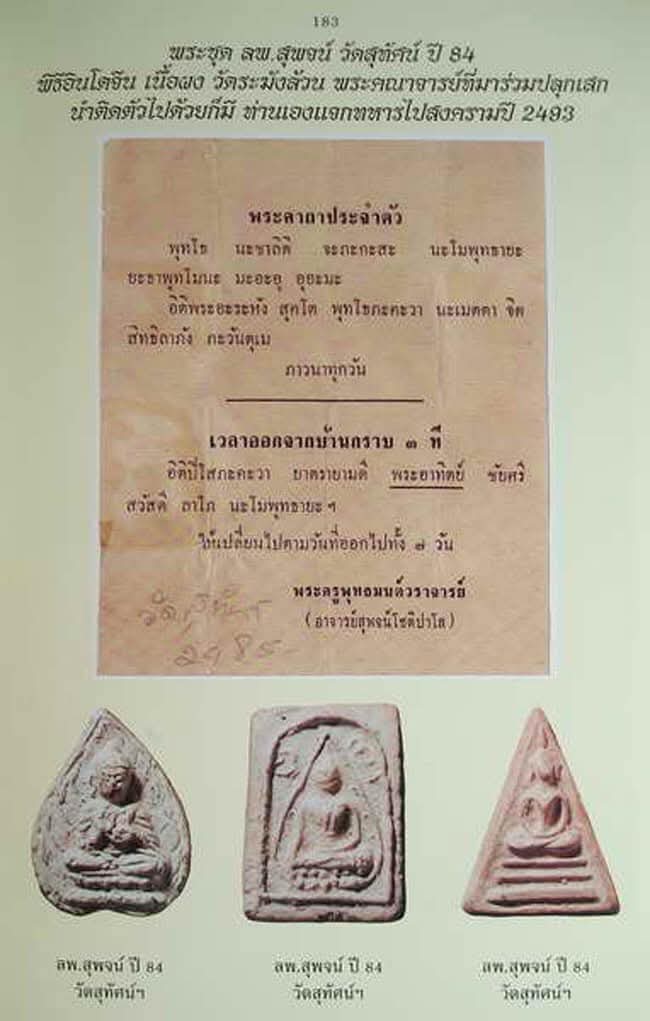 183
พระชุด ลพ.สุพจน์ วัดสุทัศน์ ปี 84
พิธีอินโดจีน เนื้อผง วัดระฆังล้วน พระคณาจารย์ที่มาร่วมปลุกเสก
นำติดตัวไปด้วยก็มี ท่านเองแจกทหารไปสงครามปี 2493
พระคาถาประจำตัว
พุทโธ นะชาลิติ จะภะกะสะ นะโมพุทธายะ
ยะธาพุทโมนะ มะอะอุ อุอะมะ
อิติพระอะระหัง สุคโต พุทโธภะคะวา นะเมตตา จิต
สิทธิลาภัง ภะวันตุเม
ภาวนาทุกวัน
เวลาออกจากบ้านกราบ ๓ ที
อิติปิโสภะคะวา ยาตรายามดี พระอาทิตย์ ชัยศรี
สวัสดี ลาโภ นะโมพุทธายะฯ
ให้เปลี่ยนไปตามวันที่ออกไปทั้ง ๗ วัน
พระครูพุทธมนต์วราจารย์
(อาจารย์สุพจน์โชติปาโล)
วัดสุทัศน์
ลพ.สุพจน์ ปี 84
วัดสุทัศน์ฯ
ลพ.สุพจน์ ปี 84
วัดสุทัศน์ฯ
ลพ.สุพจน์ ปี 84
วัดสุทัศน์ฯ